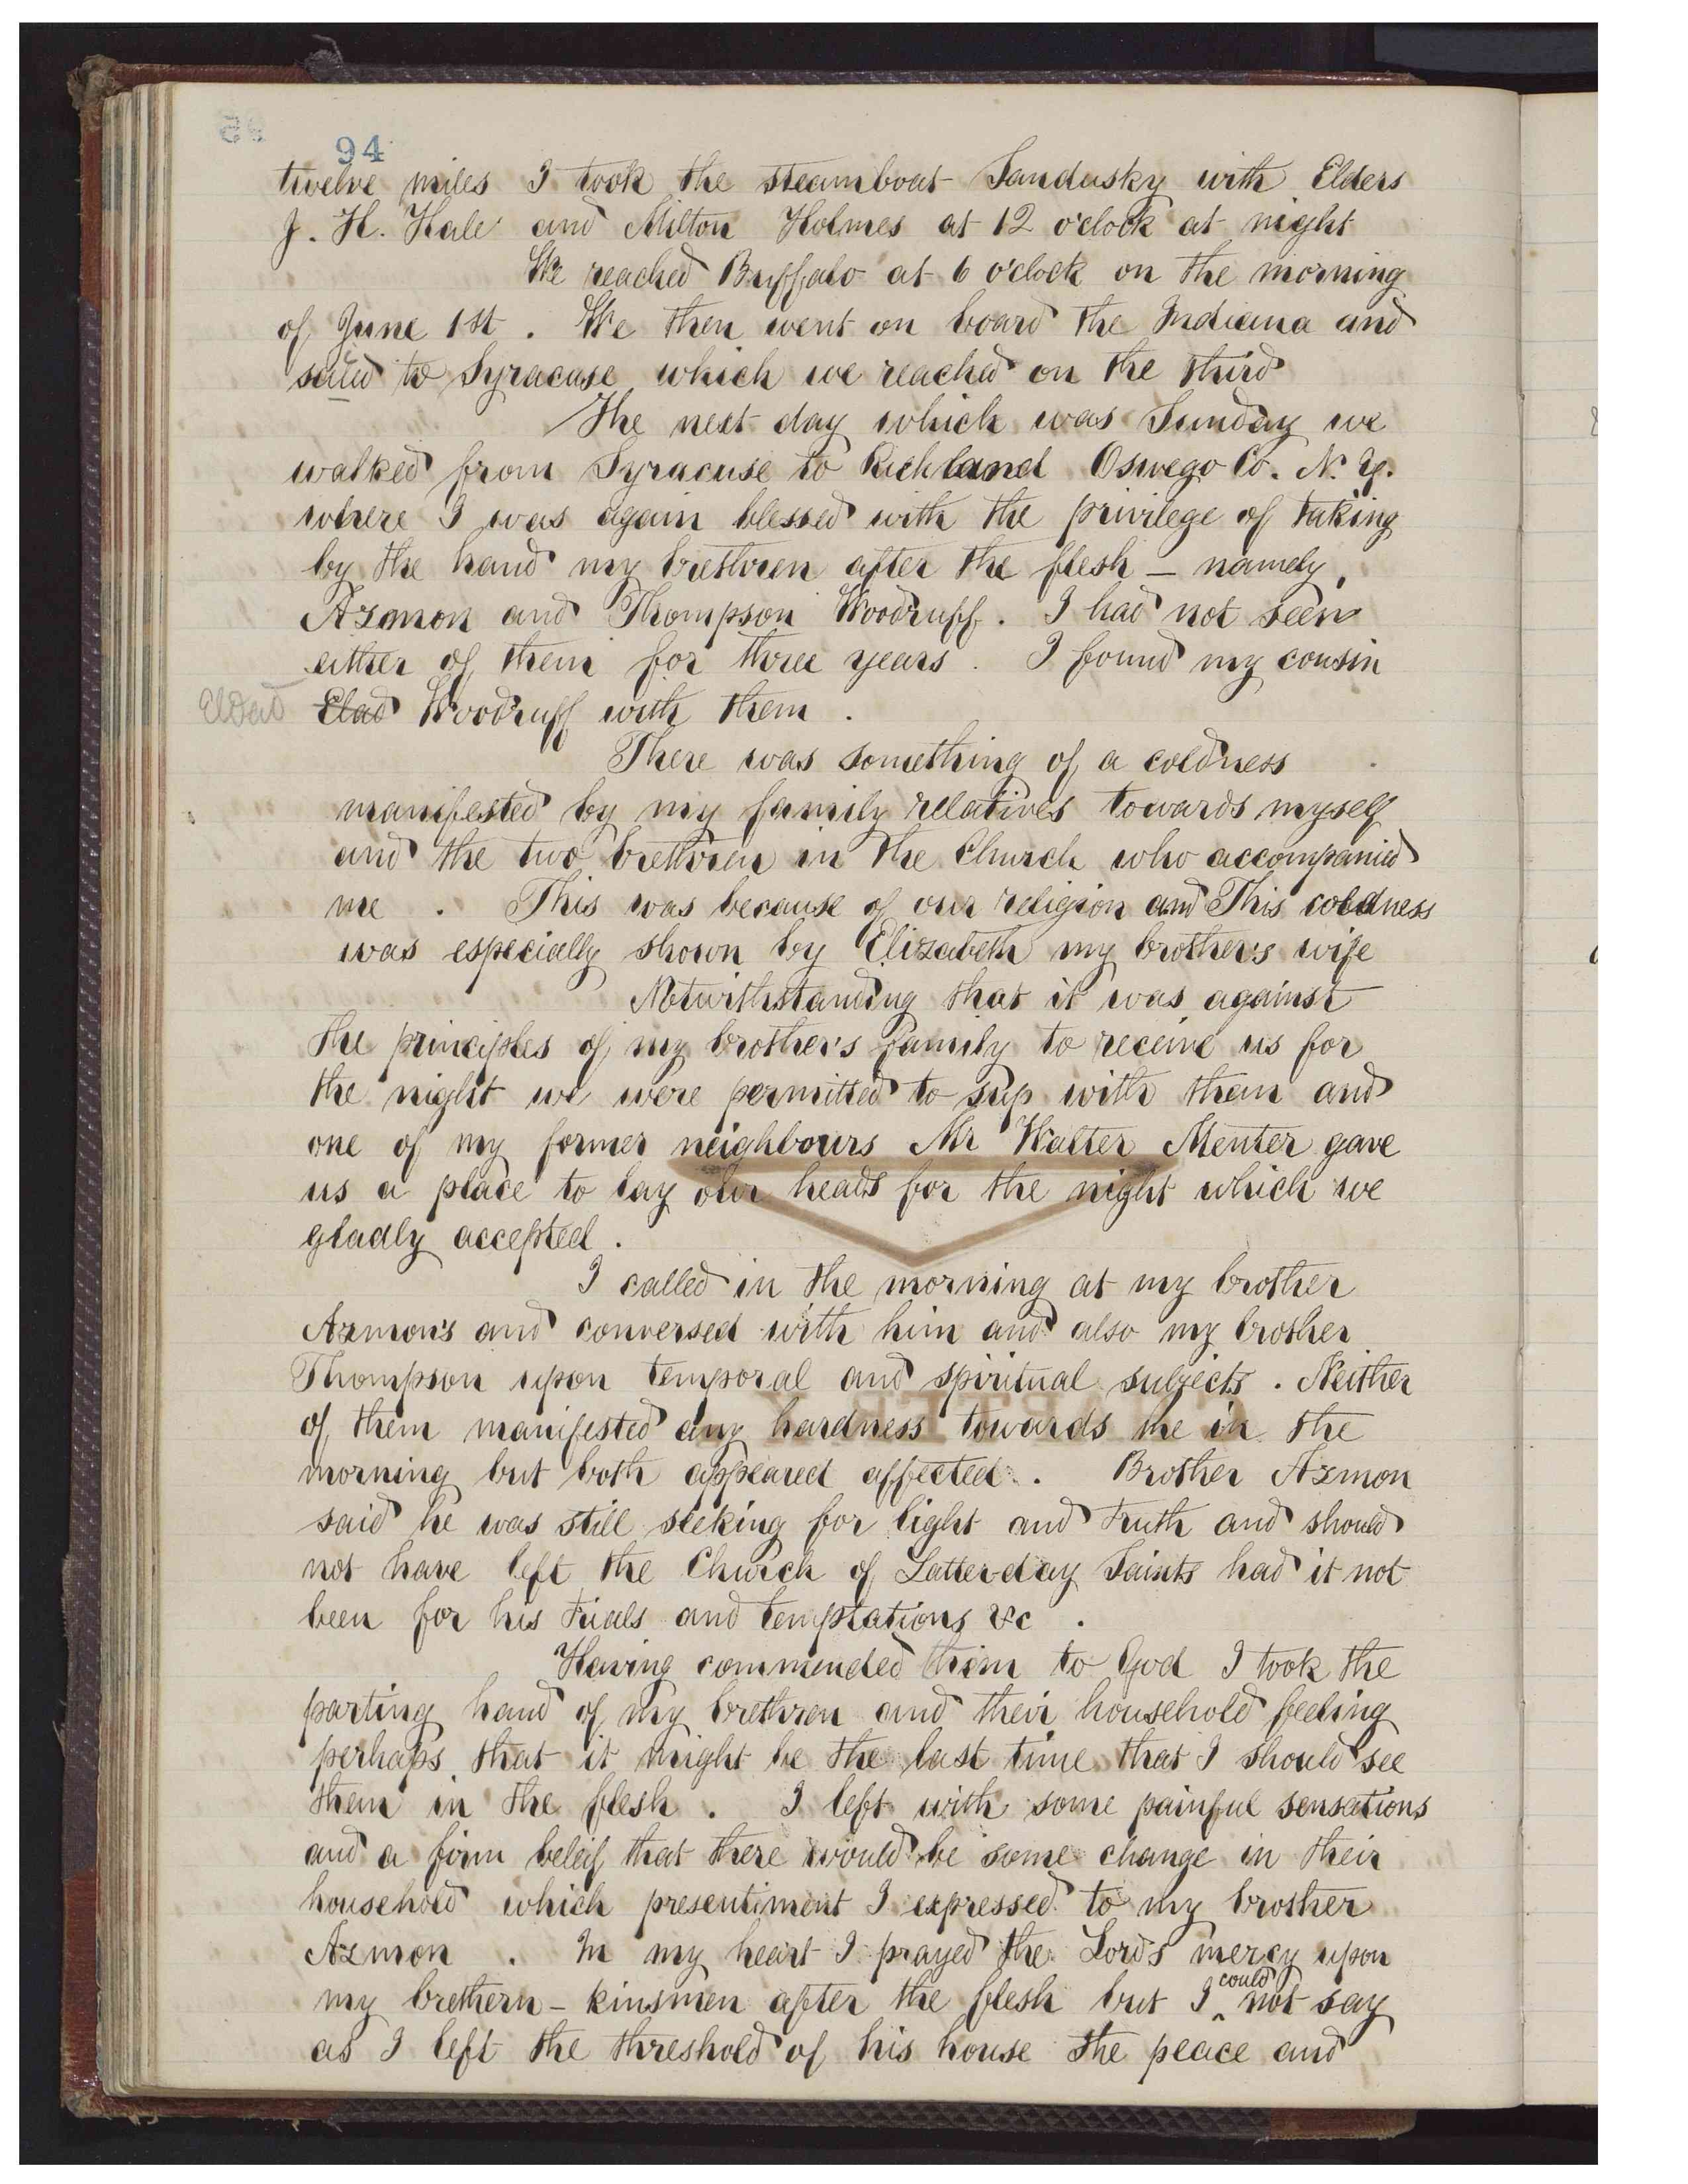 94
twelve miles I took the steamboat Sandusky with Elders
J. H. Hale and Milton Holmes at 12 o'clock at night
We reached Buffalo at 6 o'clock on the morning
of June 1st. We then went on board the Indiana and
sailed to Syracuse which we reached on the third
The next day which was Sunday we
walked from Syracuse to Richland Oswego Co. N. Y.
where I was again blessed with the privilege of taking
by the hand my brethren after the flesh – namely,
Azmon and Thompson Woodruff. I had not seen
either of them for three years. I found my cousin
Eldad Elad Woodruff with them.
There was something of a coldness
manifested by my family relatives towards myself
and the two brethren in the Church who accompanied
me. This was because of our religion and This coldness
was especially shown by Elizabeth my brother's wife
Notwithstanding that it was against
the principles of my brother's family to receive us for
the night we were permitted to sup with them and
one of my former neighbours Mr Walter Menter gave
us a place to lay our heads for the night which we
gladly accepted.
I called in the morning at my brother
Azmon's and conversed with him and also my brother
Thompson upon temporal and spiritual subjects. Neither
of them manifested any hardness towards me in the
morning but both appeared affected. Brother Azmon
said he was still seeking for light and truth and should
not have left the Church of Latter-day Saints had it not
been for his trials and temptations &c.
Having commended them to God I took the
parting hand of my brethren and their household feeling
perhaps that it might be the last time that I should see
them in the flesh. I left with some painful sensations
and a firm beleif that there would be some change in their
household which presentiment I expressed to my brother
Azmon. In my heart I prayed the Lord's mercy upon
my brethern – kinsmen after the flesh but I ^could not say
as I left the threshold of his house the peace and